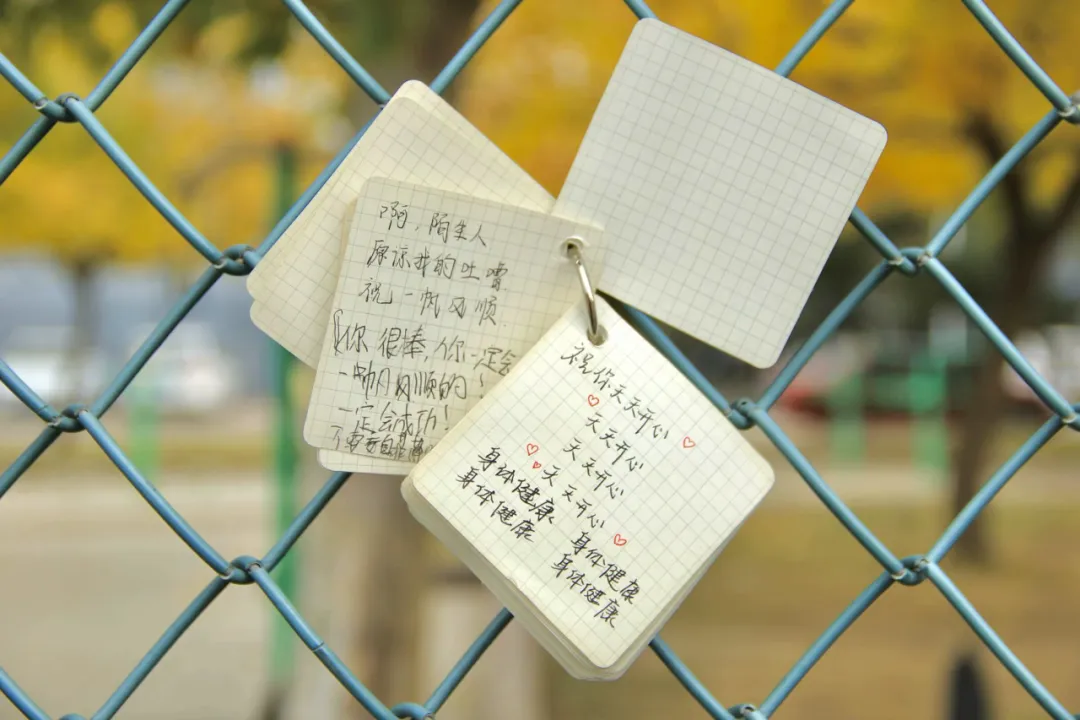 啊，陌生人
原谅我的吐嘈
祝一帆风顺
你很棒，你一定会
一帆风顺的！
一定会成功！
不要妄自菲薄
祝你天天开心
天天开心
天天开心
天天开心
身体健康
身体健康
身体健康
身体健康